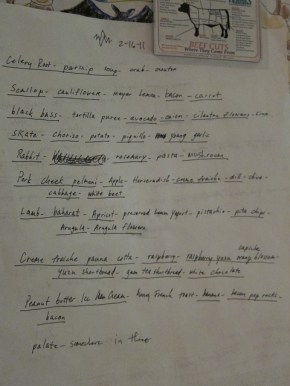 2-16-11
BEEF CUTS
Celery Root - parsnip
Scallop - cauliflower - meyer lemon - bacon - carrot
black bass - tortilla puree - avocado - onion - cilantro flowers - lime
Skate - chorizo - potato - piquillo - young garlic
Rabbit - rosemary - pasta - mushrooms
Pork cheek pelmeni - Apple - Horseradish - creme fraiche - dill - olive
cabbage - white beet
Lamb - baharat - Apricot - preserved lemon yogurt - pistachio - pita chips
Arugula - Arugula flowers
Creme fraiche panna cotta - raspberry - raspberry yuzu
yuzu shortbread - shortbread - white chocolate
Peanut butter Ice Cream - French toast - pop rocks
bacon
palate - in three